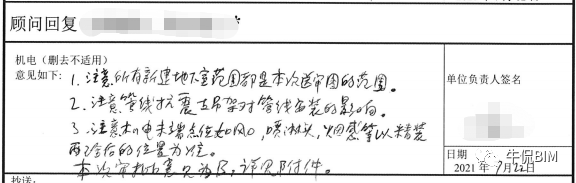 顾问回复
机电（删去不适用）
意见如下：
1. 注意所有新建地下室范围都是本次送审图的范围。
2. 注意管线抗震支吊架对管线安装的影响。
3. 注意机电末端点位如风口，喷淋头，烟感等以精装
两院后的位置为准。
本次审批意见为B，详见附件。
单位负责人签名
日期
2021年7月22日
抄送：
牛侃BIM